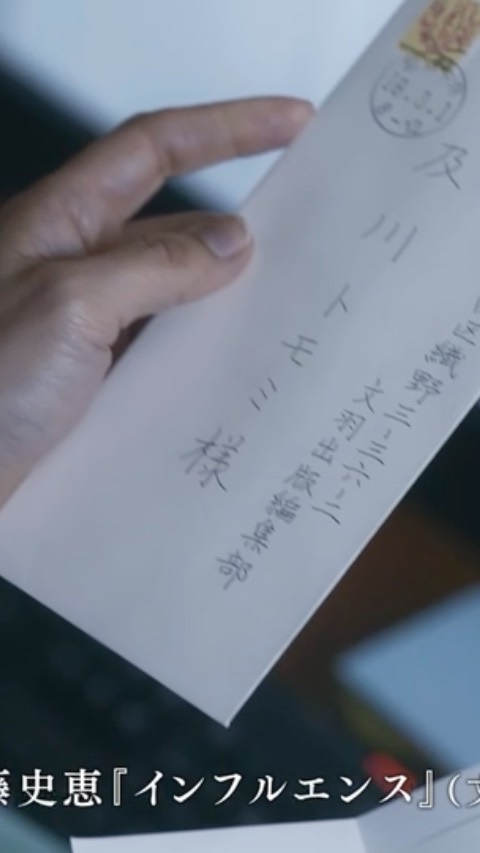 区織野三-三六-二
文羽出版編集部
及川トモミ様
藤史恵『インフルエンス』(文